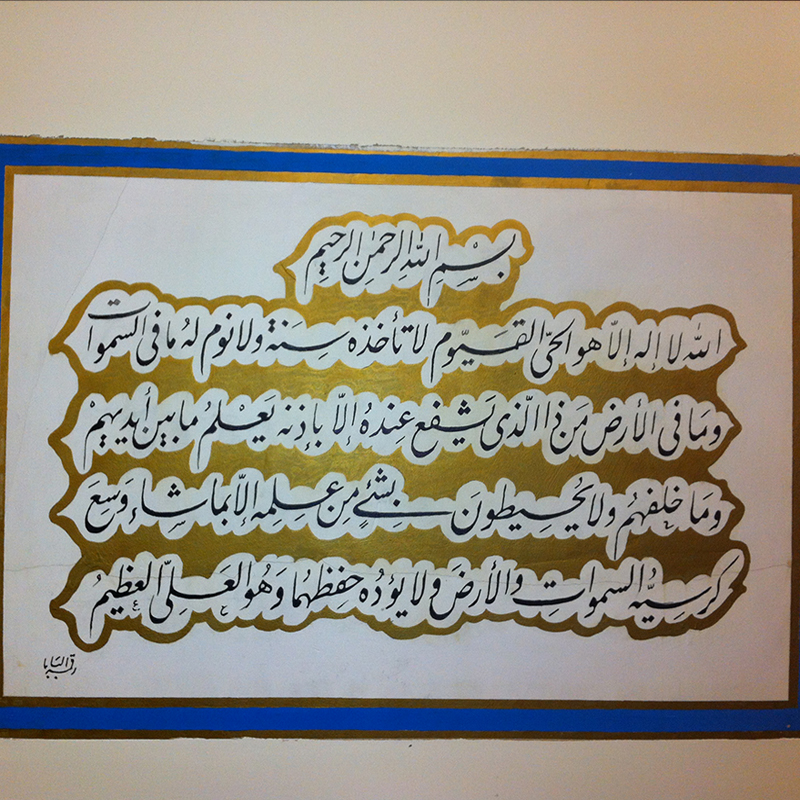 بِسْمِ اللهِ الرحمٰنِ الرحيمِ
الله لا إله إلّا هو الحيّ القَيّوم لا تأخذه سِنَة ولا نوم لهُ ما فى السموات
ومَا فى الأرض مَن ذا الّذى يَشفع عِندهُ إلّا بإذنه يَعْلمُ ما بين أيديهِمْ
ومَا خلفهُم ولا يُحيطونَ بِشئٍ مِن عِلمِه إلّا بما شاء وَسِعَ
كرسيُّه السمواتِ والأرضَ ولا يؤدُه حِفظهُما وَهُو العَلىّ العظيمُ
رقمه البابا